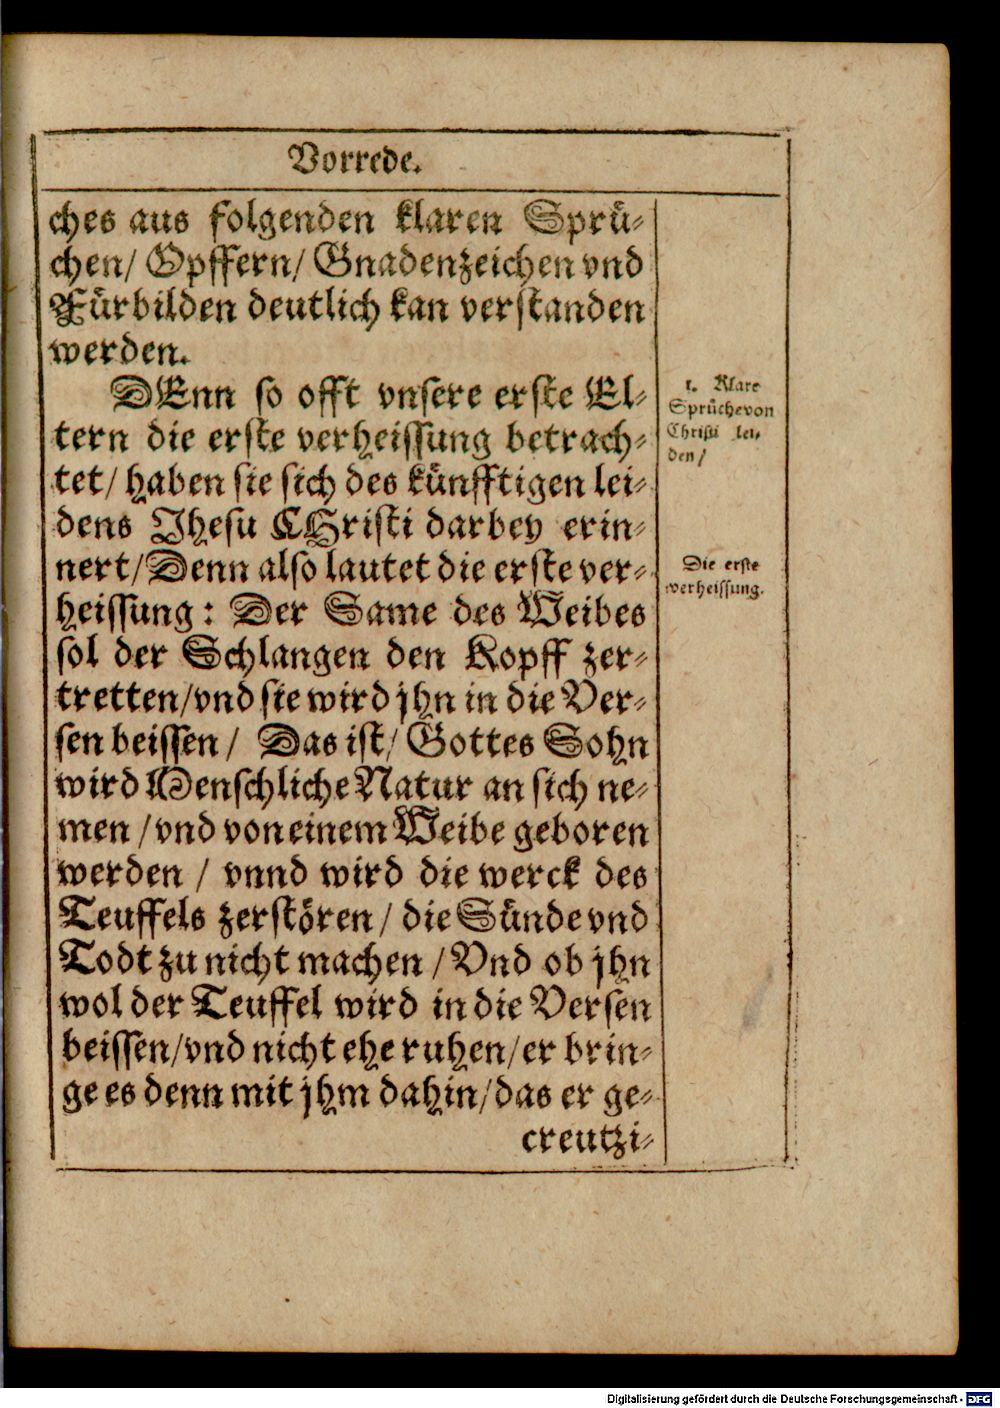 Vorrede.
ches aus folgenden klaren Sprü-
chen/ Opffern/ Gnadenzeichen vnd
Fürbilden deutlich kan verstanden
werden.
DEnn so offt vnsere erste El-
tern die erste verheissung betrach-
tet/ haben sie sich des künfftigen lei-
dens Jhesu CHristi darbey erin-
nert/ Denn also lautet die erste ver-
heissung: Der Same des Weibes
sol der Schlangen den Kopff zer-
tretten/vnd sie wird jhn in die Ver-
sen beissen/ Das ist/ Gottes Sohn
wird Menschliche Natur an sich ne-
men/vnd von einem Weibe geboren
werden/ vnnd wird die werck des
Teuffels zerstören/ die Sünde vnd
Todt zu nicht machen/ Vnd ob jhn
wol der Teuffel wird in die Versen
beissen/vnd nicht ehe ruhen/er brin-
ge es denn mit jhm dahin/das er ge-
creutzi-
1. Klare
Sprüche von
Christi lei-
den/
Die erste
verheissung.
Digitalisierung gefördert durch die Deutsche Forschungsgemeinschaft - DFG